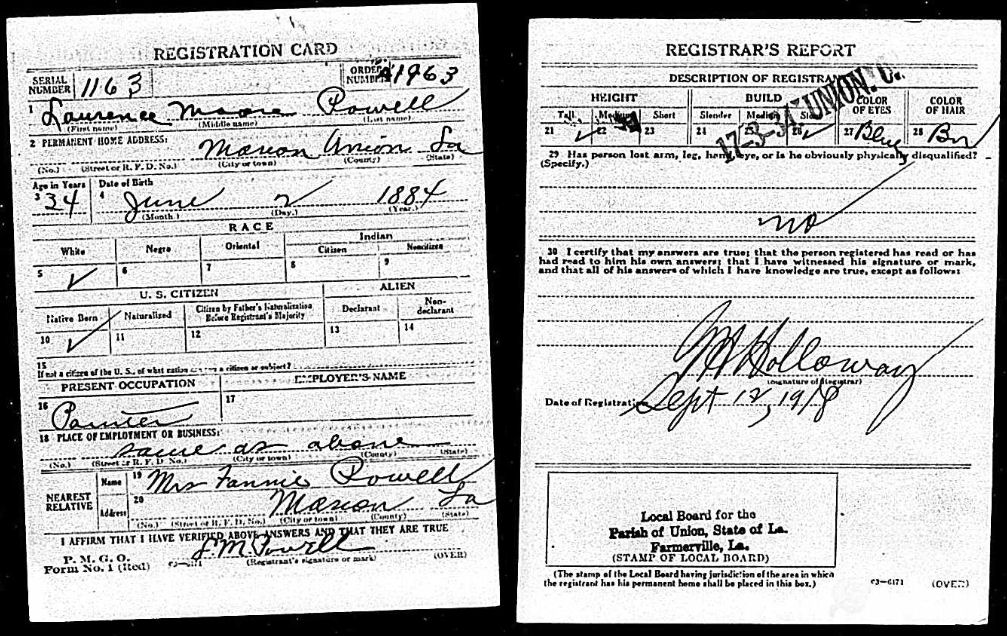 REGISTRATION CARD
SERIAL NUMBER 1163
ORDER NUMBER A1963
1 Laurence Moore Powell
(First name) (Middle name) (Last name)
2 PERMANENT HOME ADDRESS:
Marion Union La
(No.) (Street or R. F. D. No.) (City or town) (County) (State)
Age in Years Date of Birth
3 34 4 June 2 1884
(Month.) (Day.) (Year.)
RACE
White Negro Oriental Indian
Citizen Noncitizen
5 ✓ 6 7 8 9
U. S. CITIZEN ALIEN
Native Born Naturalized Citizen by Father's Naturalization Before Registrant's Majority Declarant Non-declarant
10 ✓ 11 12 13 14
15
If not a citizen of the U. S., of what nation are you a citizen or subject?
PRESENT OCCUPATION EMPLOYER'S NAME
16 Painter 17
18 PLACE OF EMPLOYMENT OR BUSINESS:
same as above
(No.) (Street or R. F. D. No.) (City or town) (County) (State)
NEAREST RELATIVE
Name 19 Mrs Fannie Powell
Address 20 Marion La
(No.) (Street or R. F. D. No.) (City or town) (County) (State)
I AFFIRM THAT I HAVE VERIFIED ABOVE ANSWERS AND THAT THEY ARE TRUE
P. M. G. O.
Form No. 1 (Red) L M Powell
(Registrant's signature or mark) (OVER)
REGISTRAR'S REPORT
DESCRIPTION OF REGISTRANT
HEIGHT BUILD COLOR OF EYES COLOR OF HAIR
Tall Medium Short Slender Medium Stout
21 ✓ 22 23 24 25 26 27 Blue 28 Br
17-3-31 UNION. C.
29 Has person lost arm, leg, hand, eye, or is he obviously physically disqualified?
(Specify.)
no
30 I certify that my answers are true; that the person registered has read or has
had read to him his own answers; that I have witnessed his signature or mark,
and that all of his answers of which I have knowledge are true, except as follows:
Holloway
(Signature of Registrar)
Date of Registration Sept 12, 1918
Local Board for the
Parish of Union, State of La.
Farmerville, La.
(STAMP OF LOCAL BOARD)
(The stamp of the Local Board having jurisdiction of the area in which
the registrant has his permanent home shall be placed in this box.)
03—6171 (OVER)